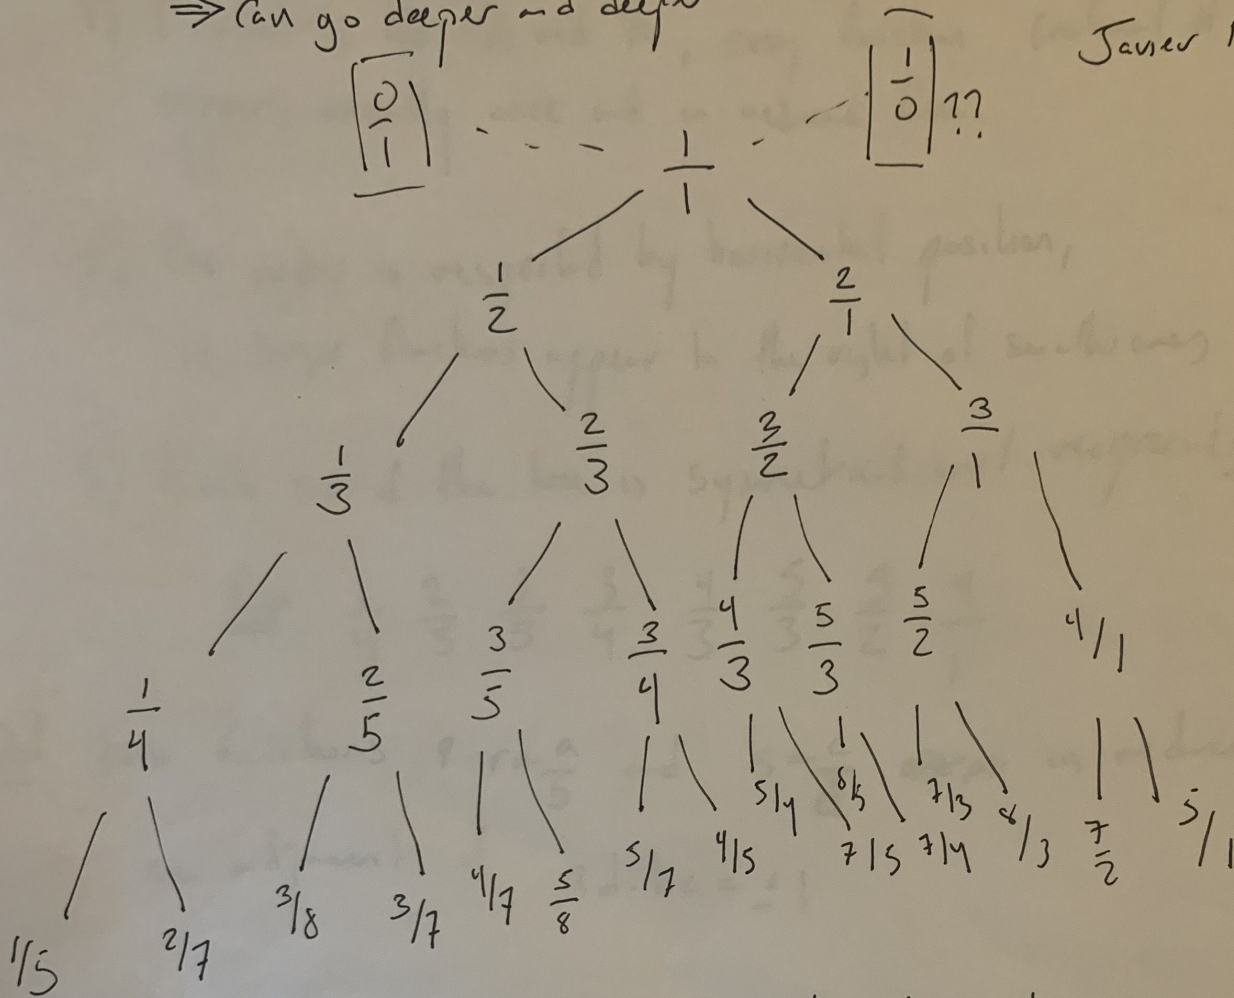 ⇒ Can go deeper and deeper
Javier
0/1 1/0 ??
1/1
1/2 2/1
1/3 2/3 3/2 3/1
1/4 2/5 3/5 3/4 4/3 5/3 5/2 4/1
1/5 2/7 3/8 3/7 4/7 5/8 5/7 4/5 5/4 7/5 8/5 7/4 7/3 8/3 7/2 5/1